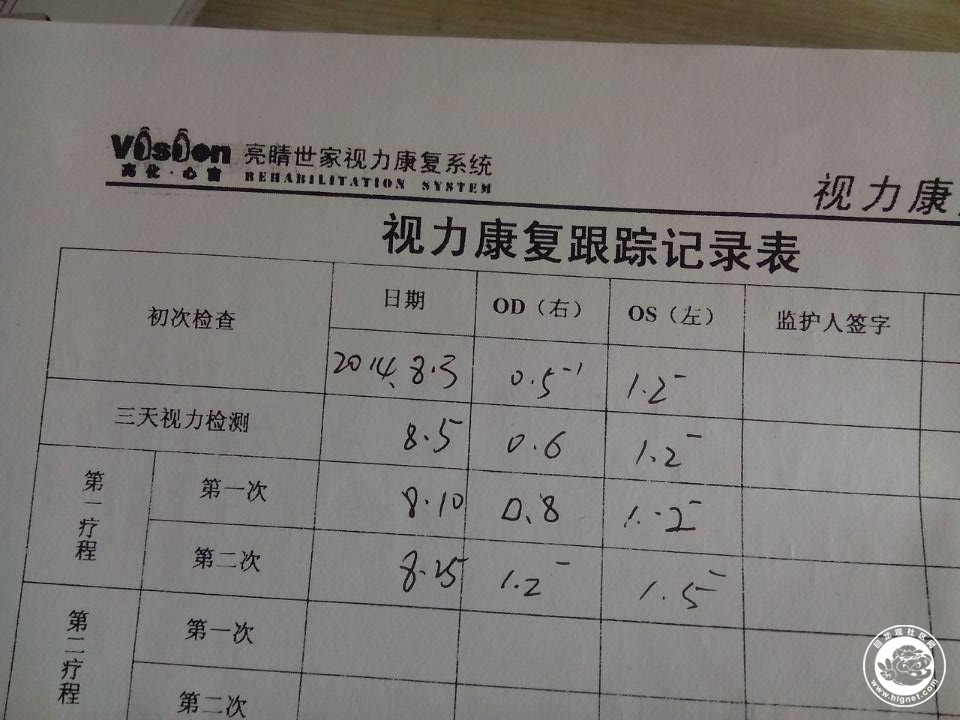 Vision 亮睛世家视力康复系统
亮化·心窗 REHABILITATION SYSTEM
视力康
视力康复跟踪记录表
初次检查 日期 OD（右） OS（左） 监护人签字
2014.8.3 0.5⁻¹ 1.2⁻
三天视力检测 8.5 0.6 1.2⁻
第一疗程 第一次 8.10 0.8 1.2⁻
第二次 8.25 1.2⁻ 1.5⁻
第二疗程 第一次
第二次
回龙观社区网
www.hlgnet.com